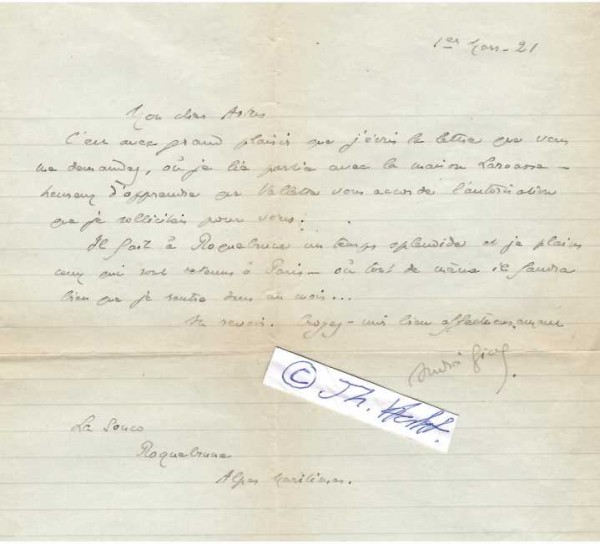 1er Mars - 21
Mon cher
C'est avec grand plaisir que j'écris la lettre que vous
me demandez, où je lie partie avec la maison
heureux d'apprendre que Vallette vous accorde l'autorisation
que je sollicitais pour vous.
Il fait à Roquebrune un temps splendide et je plains
ceux qui sont retenus à Paris — où tout de même il faudra
bien que je rentre dans un mois...
Au revoir. Croyez-moi bien affectueusement
André Gide.
© Th.
La Souco
Roquebrune
Alpes Maritimes.